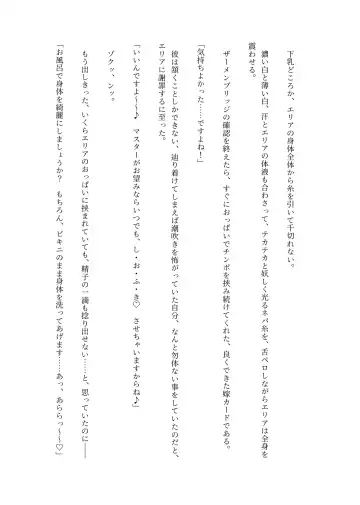 下乳どころか、エリアの身体全体から糸を引いて千切れない。
濃い白と薄い白、汗とエリアの体液も合わさって、テカテカと妖しく光るネバ糸を、舌ペロしながらエリアは全身を
震わせる。
ザーメンブリッジの確認を終えたら、すぐにおっぱいでチンポを挟み続けてくれた、良くできた嫁カードである。
「気持ちよかった……ですよね！」
彼は頷くことしかできない、辿り着けてしまえば潮吹きを怖がっていた自分、なんと勿体ない事をしていたのだと、
エリアに謝罪するに至った。
「いいんですよ～～♪　マスターがお望みならいつでも、し・お・ふ・き♡　させちゃいますからね♪」
ゾクッ、ンッ。
もう出しきった、いくらエリアのおっぱいに挟まれていても、精子の一滴も捻り出せない……と、思っていたのに――
「お風呂で身体を綺麗にしましょうか？　もちろん、ビキニのまま身体を洗ってあげます……あっ、あららっ～～♡」